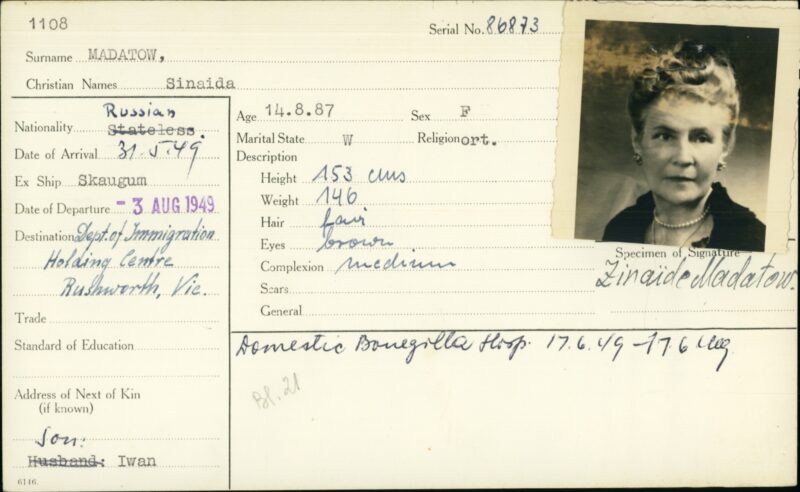 1108
Serial No. 86873
Surname MADATOW,
Christian Names Sinaida
Russian
Nationality Stateless.
Date of Arrival 31.5.49
Ex Ship Skaugum
Date of Departure - 3 AUG 1949
Destination Dept. of Immigration
Holding Centre
Rushworth, Vic.
Trade
Standard of Education
Address of Next of Kin
(if known)
Son:
Husband: Iwan
6146.
Age 14.8.87 Sex F
Marital State W Religion ort.
Description
Height 153 cms
Weight 146
Hair fair
Eyes brown
Complexion medium
Scars
General
Specimen of Signature
Zinaide Madatow.
Domestic Bonegilla Hosp. 17.6.49 - 17.6
Bl. 21